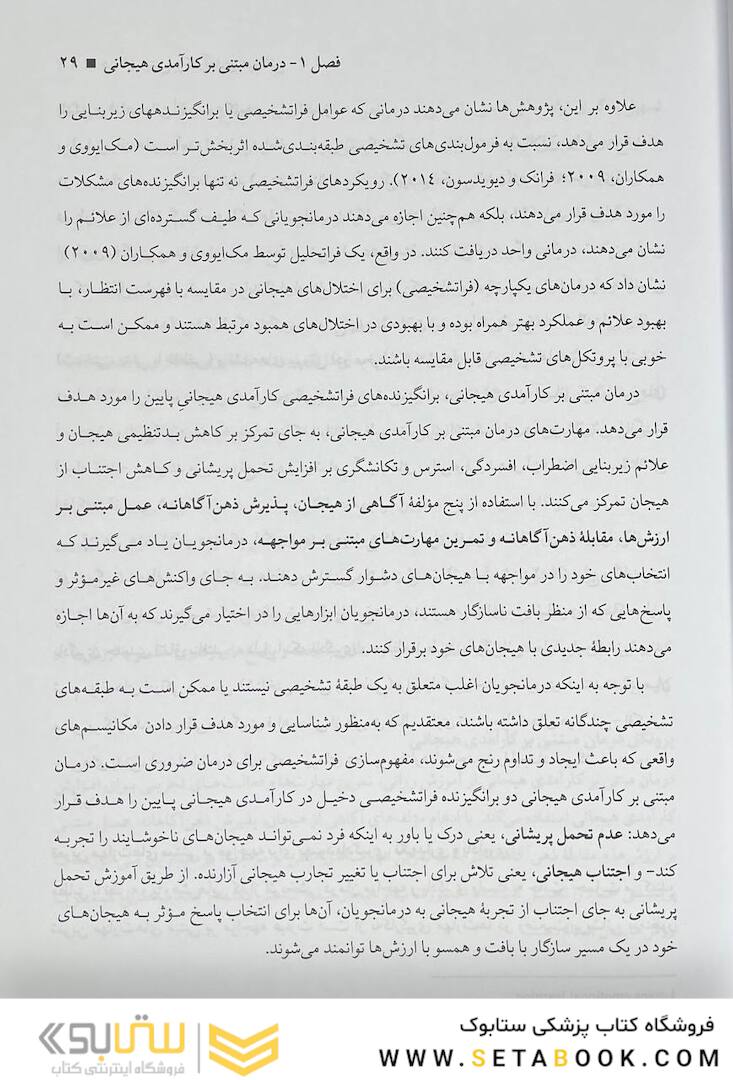 فصل ۱- درمان مبتنی بر کارآمدی هیجانی ■ ۲۹
علاوه بر این، پژوهش‌ها نشان می‌دهند درمانی که عوامل فراتشخیصی یا برانگیزنده‌های زیربنایی را
هدف قرار می‌دهد، نسبت به فرمول‌بندی‌های تشخیصی طبقه‌بندی‌شده اثربخش‌تر است (مک‌ایووی و
همکاران، ۲۰۰۹؛ فرانک و دیویدسون، ۲۰۱۴). رویکردهای فراتشخیصی نه تنها برانگیزنده‌های مشکلات
را مورد هدف قرار می‌دهند، بلکه هم‌چنین اجازه می‌دهند درمانجویانی که طیف گسترده‌ای از علائم را
نشان می‌دهند، درمانی واحد دریافت کنند. در واقع، یک فراتحلیل توسط مک‌ایووی و همکاران (۲۰۰۹)
نشان داد که درمان‌های یکپارچه (فراتشخیصی) برای اختلال‌های هیجانی در مقایسه با فهرست انتظار، با
بهبود علائم و عملکرد بهتر همراه بوده و با بهبودی در اختلال‌های همبود مرتبط هستند و ممکن است به
خوبی با پروتکل‌های تشخیصی قابل مقایسه باشند.
درمان مبتنی بر کارآمدی هیجانی، برانگیزنده‌های فراتشخیصی کارآمدی هیجانیِ پایین را مورد هدف
قرار می‌دهد. مهارت‌های درمان مبتنی بر کارآمدی هیجانی، به جای تمرکز بر کاهش بدتنظیمی هیجان و
علائم زیربنایی اضطراب، افسردگی، استرس و تکانشگری بر افزایش تحمل پریشانی و کاهش اجتناب از
هیجان تمرکز می‌کنند. با استفاده از پنج مؤلفهٔ آگاهی از هیجان، پذیرش ذهن‌آگاهانه، عمل مبتنی بر
ارزش‌ها، مقابلهٔ ذهن‌آگاهانه و تمرین مهارت‌های مبتنی بر مواجهه، درمانجویان یاد می‌گیرند که
انتخاب‌های خود را در مواجهه با هیجان‌های دشوار گسترش دهند. به جای واکنش‌های غیرمؤثر و
پاسخ‌هایی که از منظر بافت ناسازگار هستند، درمانجویان ابزارهایی را در اختیار می‌گیرند که به آن‌ها اجازه
می‌دهند رابطهٔ جدیدی با هیجان‌های خود برقرار کنند.
با توجه به اینکه درمانجویان اغلب متعلق به یک طبقهٔ تشخیصی نیستند یا ممکن است به طبقه‌های
تشخیصی چندگانه تعلق داشته باشند، معتقدیم که به‌منظور شناسایی و مورد هدف قرار دادن مکانیسم‌های
واقعی که باعث ایجاد و تداوم رنج می‌شوند، مفهوم‌سازی فراتشخیصی برای درمان ضروری است. درمان
مبتنی بر کارآمدی هیجانی دو برانگیزنده فراتشخیصی دخیل در کارآمدی هیجانی پایین را هدف قرار
می‌دهد: عدم تحمل پریشانی، یعنی درک یا باور به اینکه فرد نمی‌تواند هیجان‌های ناخوشایند را تجربه
کند- و اجتناب هیجانی، یعنی تلاش برای اجتناب یا تغییر تجارب هیجانی آزارنده. از طریق آموزش تحمل
پریشانی به جای اجتناب از تجربهٔ هیجانی به درمانجویان، آن‌ها برای انتخاب پاسخ مؤثر به هیجان‌های
خود در یک مسیر سازگار با بافت و همسو با ارزش‌ها توانمند می‌شوند.
فروشگاه کتاب پزشکی ستابوک
WWW.SETABOOK.COM
ستابوک
فروشگاه اینترنتی کتاب